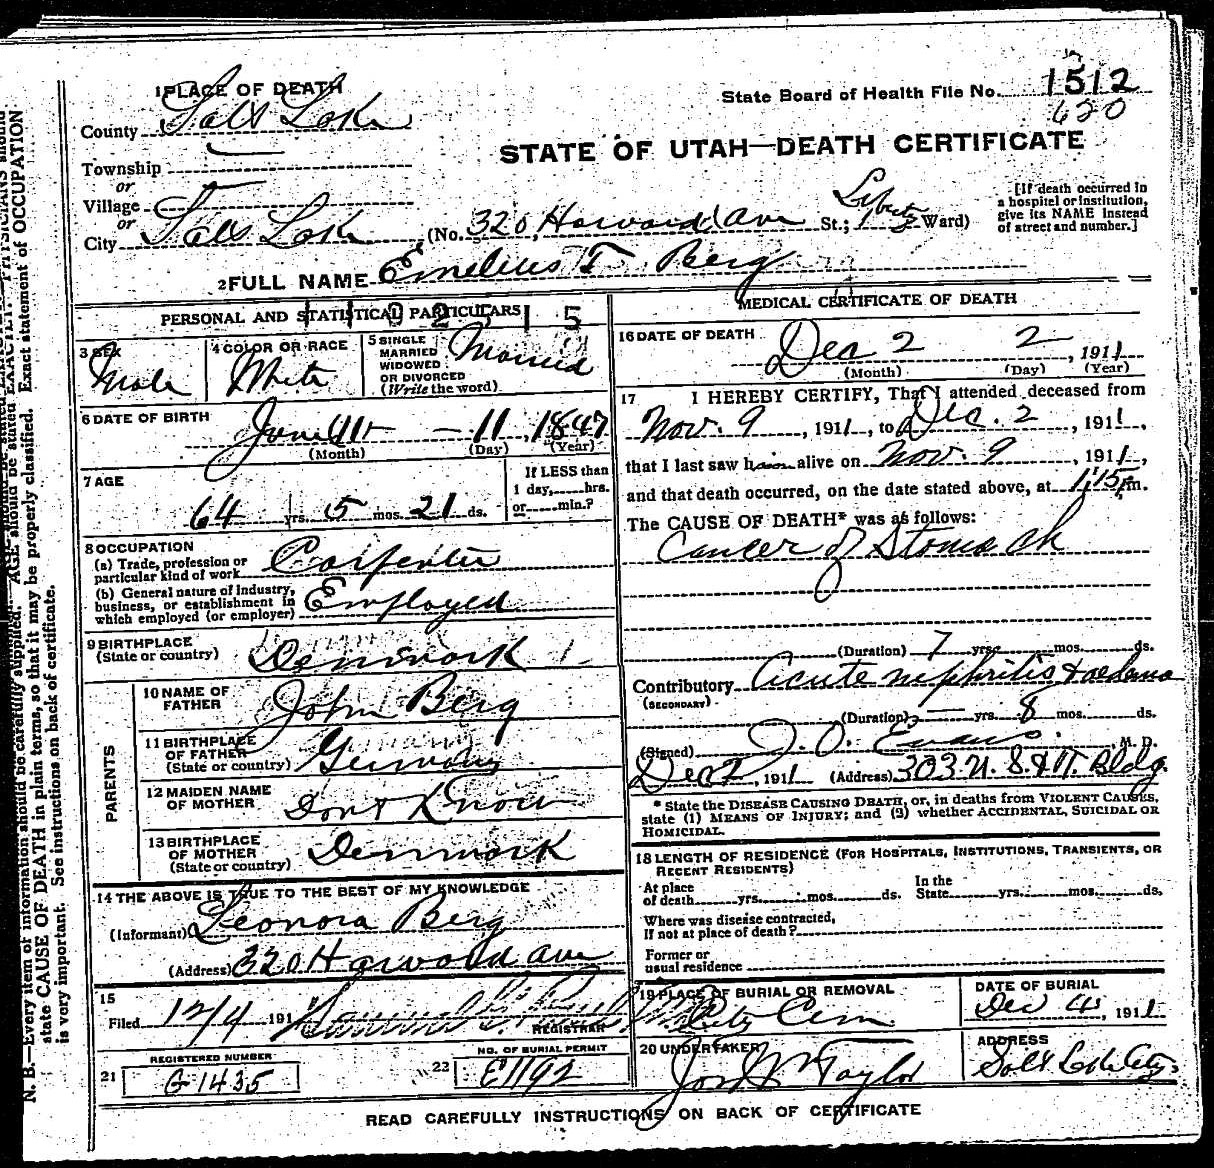 1 PLACE OF DEATH
County Salt Lake
Township
or
Village
or
City Salt Lake (No. 320, Harwood Ave St.; Liberty Ward)
[If death occurred in a hospital or institution, give its NAME instead of street and number.]
State Board of Health File No. 1512
620
STATE OF UTAH—DEATH CERTIFICATE
2 FULL NAME Emelius T Berg
PERSONAL AND STATISTICAL PARTICULARS
3 SEX
Male
4 COLOR OR RACE
White
5 SINGLE
MARRIED
WIDOWED
OR DIVORCED
(Write the word)
Married
6 DATE OF BIRTH
June 11 - 11, 1847
(Month) (Day) (Year)
7 AGE
64 yrs. 5 mos. 21 ds.
If LESS than
1 day, hrs.
or min.?
8 OCCUPATION
(a) Trade, profession or
particular kind of work Carpenter
(b) General nature of Industry,
business, or establishment in
which employed (or employer) Employed
9 BIRTHPLACE
(State or country) Denmark
PARENTS
10 NAME OF
FATHER John Berg
11 BIRTHPLACE
OF FATHER
(State or country) Germany
12 MAIDEN NAME
OF MOTHER Dont Know
13 BIRTHPLACE
OF MOTHER
(State or country) Denmark
14 THE ABOVE IS TRUE TO THE BEST OF MY KNOWLEDGE
(Informant) Leonora Berg
(Address) 320 Harwood Ave
15
Filed 12/4 191
REGISTRAR
21 REGISTERED NUMBER
G 1435
22 NO. OF BURIAL PERMIT
E1192
MEDICAL CERTIFICATE OF DEATH
16 DATE OF DEATH
Dec 2 2, 1911
(Month) (Day) (Year)
17 I HEREBY CERTIFY, That I attended deceased from
Nov. 9, 1911, to Dec. 2, 1911,
that I last saw him alive on Nov. 9, 1911,
and that death occurred, on the date stated above, at 1:15 m.
The CAUSE OF DEATH* was as follows:
Cancer of Stomach
(Duration) 7 yrs. mos. ds.
Contributory Acute nephritis & oedema
(SECONDARY)
(Duration) — yrs. 8 mos. ds.
(Signed) J. O. Evans. M. D.
Dec 2, 1911 (Address) 303 U. S. & T. Bldg.
* State the DISEASE CAUSING DEATH, or, in deaths from VIOLENT CAUSES,
state (1) MEANS OF INJURY; and (2) whether ACCIDENTAL, SUICIDAL OR
HOMICIDAL.
18 LENGTH OF RESIDENCE (FOR HOSPITALS, INSTITUTIONS, TRANSIENTS, OR
RECENT RESIDENTS)
At place
of death yrs. mos. ds.
In the
State yrs. mos. ds.
Where was disease contracted,
If not at place of death?
Former or
usual residence
19 PLACE OF BURIAL OR REMOVAL
City Cem
DATE OF BURIAL
Dec 4, 1911
20 UNDERTAKER
Jos Wm Taylor
ADDRESS
Salt Lake City
READ CAREFULLY INSTRUCTIONS ON BACK OF CERTIFICATE
N. B.—Every item of information should be carefully supplied. AGE should be stated EXACTLY. PHYSICIANS should
state CAUSE OF DEATH in plain terms, so that it may be properly classified. Exact statement of OCCUPATION
is very important. See instructions on back of certificate.